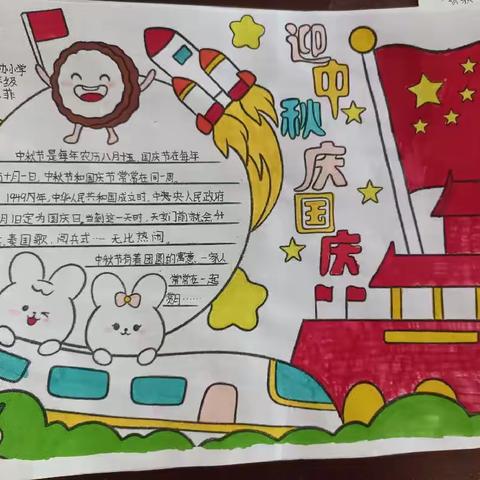 办小学
年级
菲
迎中秋庆国庆
中秋节是每年农历八月十五，国庆节在每年
十月一日，中秋节和国庆节常常在同一周。
1949年，中华人民共和国成立时，中央人民政府
月1日定为国庆日，当到这一天时，天安门前就会升
奏国歌，阅兵式…无比热闹。
中秋节有着团圆的寓意，一家人
常常在一起